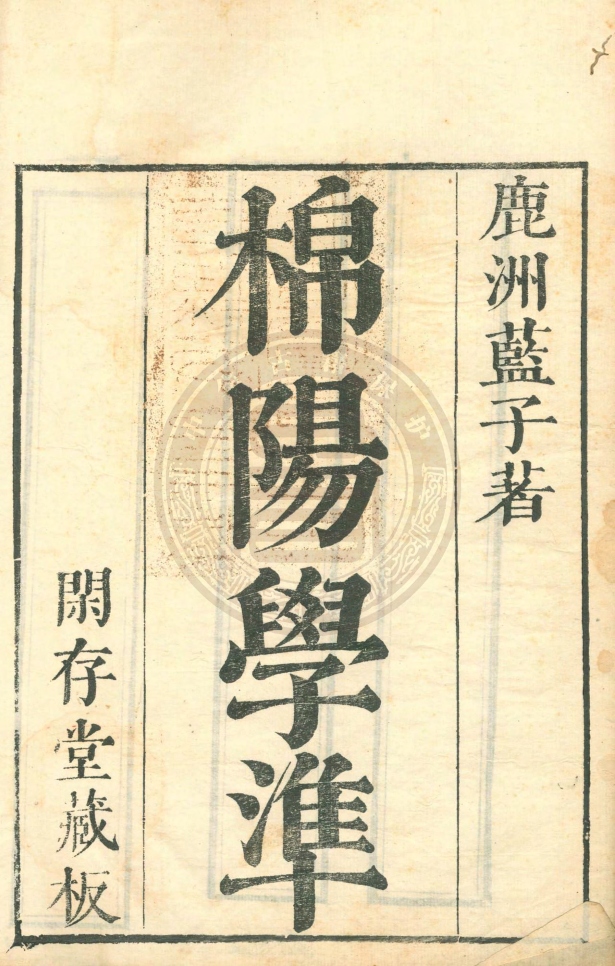 鹿洲藍子著
棉陽學準
閑存堂藏板